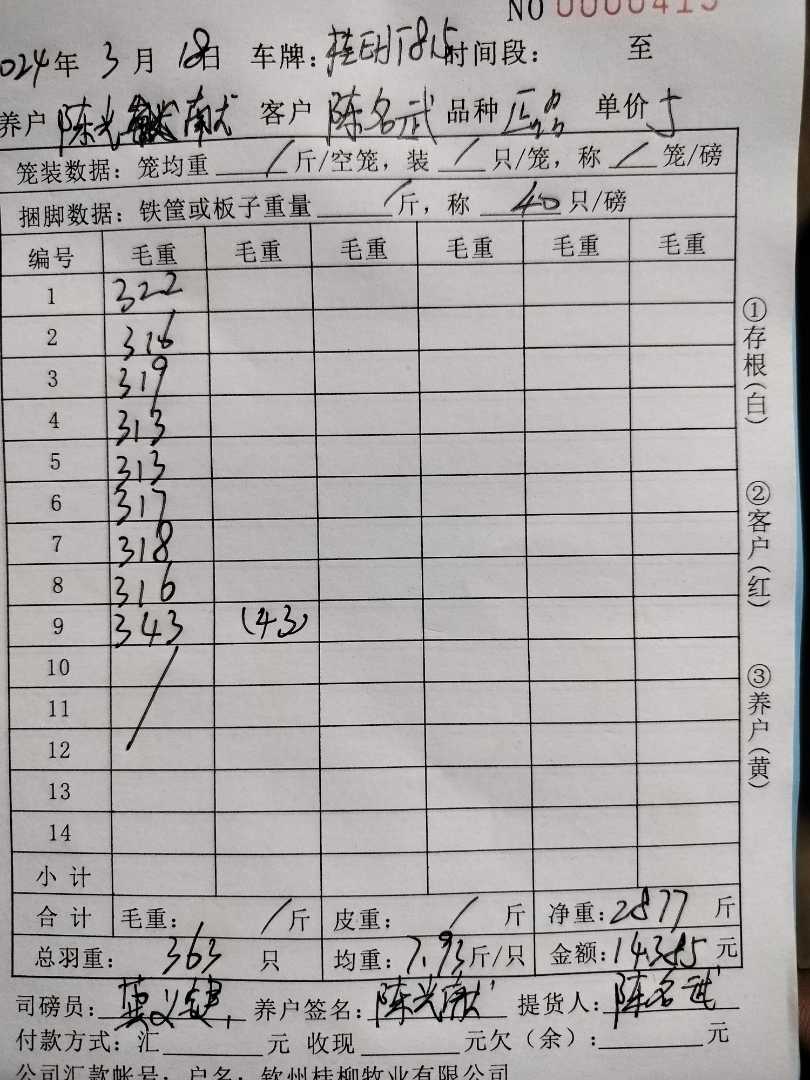 NO 0000415
2024年 3月 18日 车牌: 时间段: 至
养户 陈光献 客户 陈名武 品种 单价 5
笼装数据: 笼均重 / 斤/空笼, 装 / 只/笼, 称 / 笼/磅
捆脚数据: 铁筐或板子重量 / 斤, 称 40 只/磅
编号 毛重 毛重 毛重 毛重 毛重 毛重
1 322
2 316
3 319
4 313
5 313
6 317
7 318
8 316
9 343 (43)
10
11
12
13
14
小计
合计 毛重: / 斤 皮重: / 斤 净重: 2877 斤
总羽重: 363 只 均重: 7.93 斤/只 金额: 14385 元
司磅员: 养户签名: 陈光献 提货人: 陈名武
付款方式: 汇 元 收现 元欠(余): 元
公司汇款帐号: 户名: 钦州桂柳牧业有限公司
①存根(白)
②客户(红)
③养户(黄)